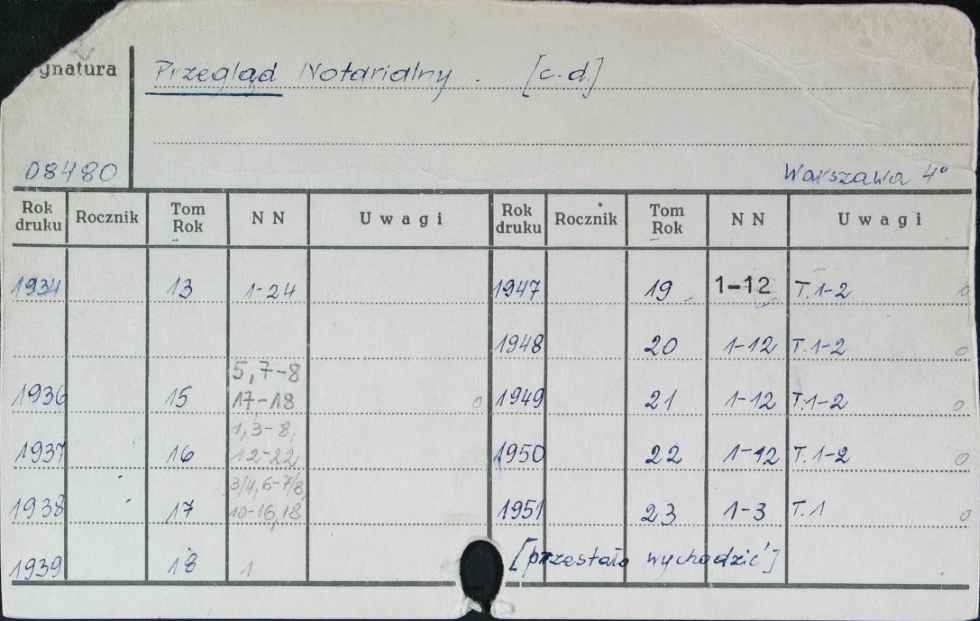 ygnatura Przegląd Notarialny. [c.d.]
08480 Warszawa 4°
Rok druku Rocznik Tom Rok NN Uwagi Rok druku Rocznik Tom Rok NN Uwagi
1934 13 1-24 1947 19 1-12 T.1-2 0
1948 20 1-12 T.1-2 0
5, 7-8
1936 15 17-18 0 1949 21 1-12 T.1-2 0
1, 3-8,
1937 16 12-22 1950 22 1-12 T.1-2 0
3/4, 6-7/8,
1938 17 10-16, 18 1951 23 1-3 T.1 0
1939 18 1 [przestało wychodzić]